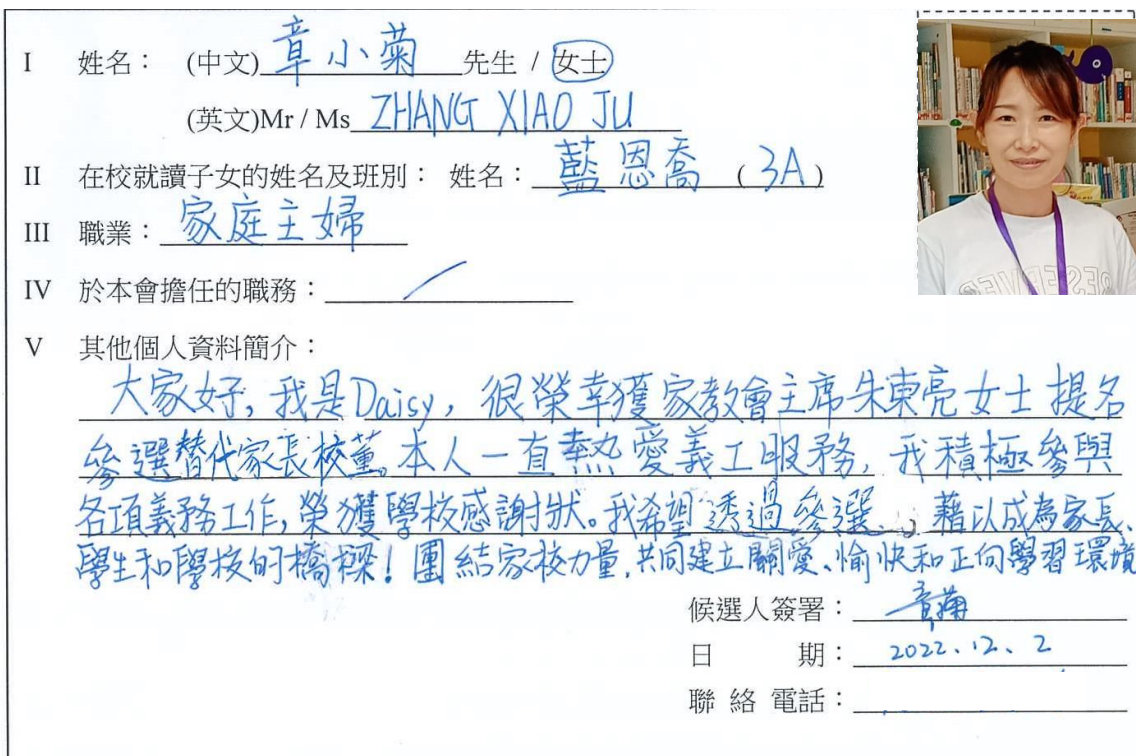 I 姓名： (中文) 章小菊 先生 / 女士
(英文)Mr / Ms ZHANG XIAO JU
II 在校就讀子女的姓名及班別： 姓名： 藍恩喬 ( 3A )
III 職業： 家庭主婦
IV 於本會擔任的職務： /
V 其他個人資料簡介：
大家好, 我是Daisy, 很榮幸獲家教會主席朱東亮女士提名
參選替代家長校董。本人一直熱愛義工服務, 我積極參與
各項義務工作, 榮獲學校感謝狀。我希望透過參選, 藉以成為家長、
學生和學校的橋樑! 團結家校力量, 共同建立關愛、愉快和正向學習環境
候選人簽署：
日 期： 2022、12、2
聯絡電話：
RESERVED